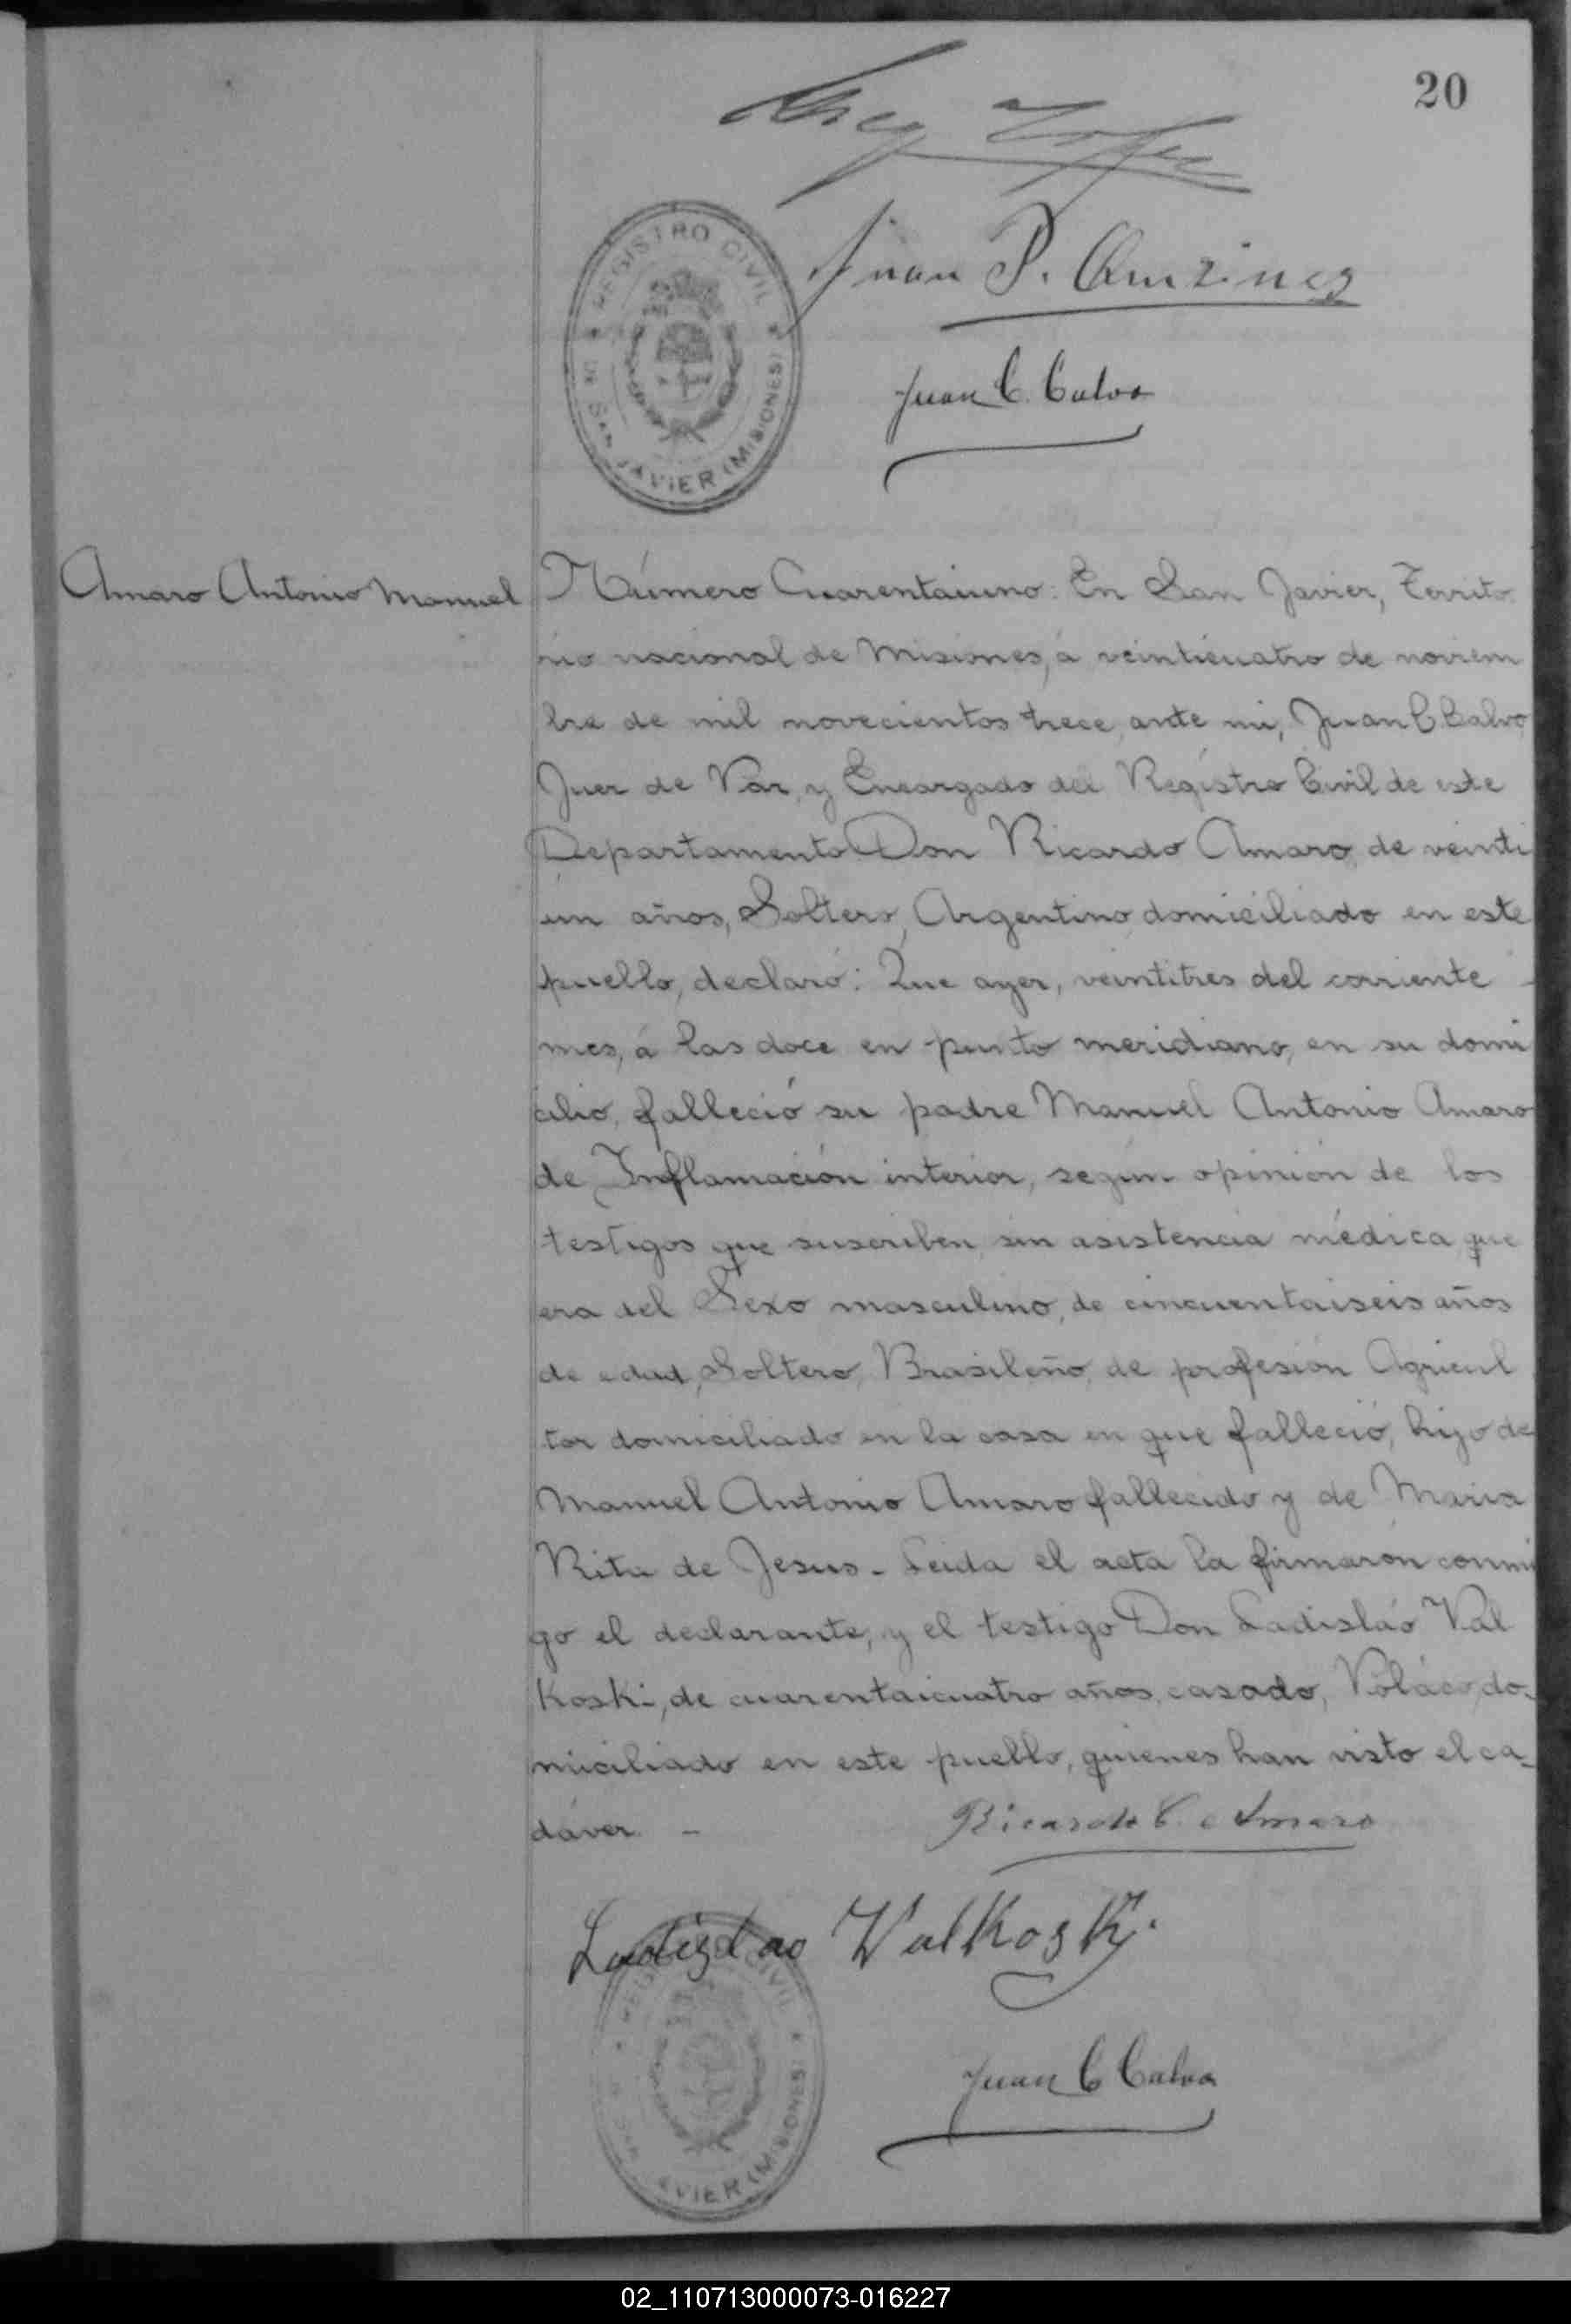 20
Juan P.
REGISTRO CIVIL
DE SAN JAVIER (MISIONES)
Juan C. Calvo
Amaro Antonio Manuel
Número Cuarentaiuno: En San Javier, Territo
rio nacional de Misiones, á veinticuatro de noviem
bre de mil novecientos trece, ante mi, Juan C. Calvo
Juez de Paz, y Encargado del Registro Civil de este
Departamento Don Ricardo Amaro, de veinti
ún años, Soltero, Argentino, domiciliado en este
pueblo, declaró: Que ayer, veintitres del corriente
mes, á las doce en punto meridiano, en su domi
cilio, falleció su padre Manuel Antonio Amaro
de Inflamación interior, según opinión de los
testigos que suscriben, sin asistencia médica, que
era del Sexo masculino, de cincuentaiseis años
de edad, Soltero, Brasileño, de profesión Agricul
tor domiciliado en la casa en que falleció, hijo de
Manuel Antonio Amaro fallecido y de Maria
Rita de Jesus. Leida el acta la firmarón conmi
go el declarante, y el testigo Don Ladisláo Val
koski, de cuarentaicuatro años, casado, Poláco, do-
miciliado en este pueblo, quienes han visto el ca-
dáver. -
Ricardo C. Amaro
Ladislao Walkosky.
REGISTRO CIVIL
SAN JAVIER (MISIONES)
Juan C Calvo
02_110713000073-016227